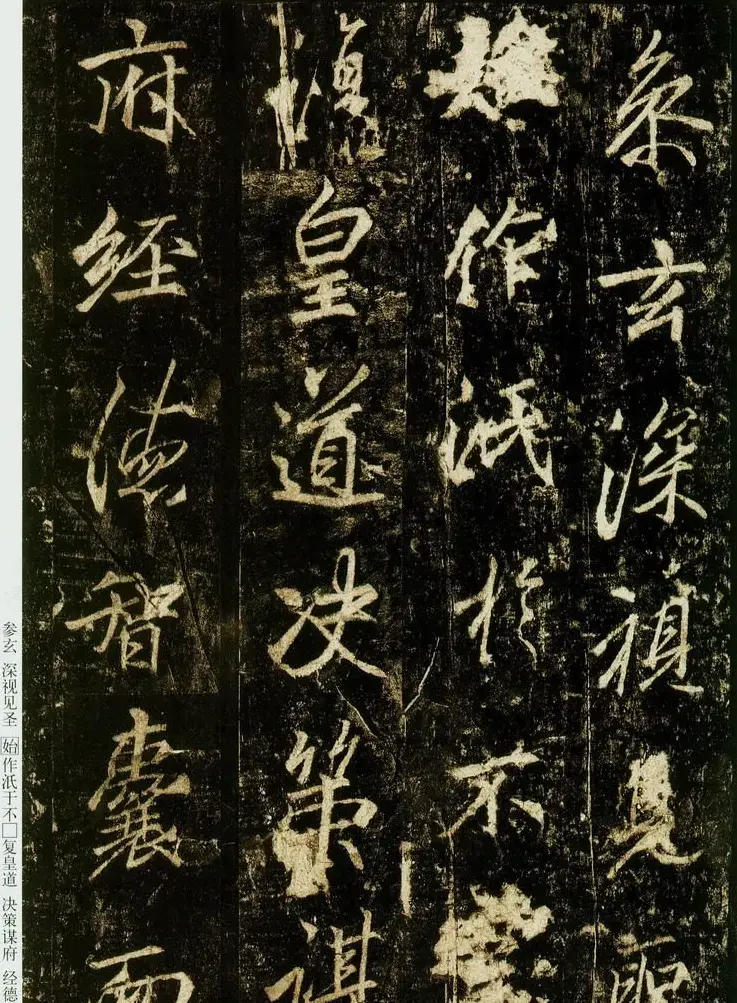 叅玄深視見聖
作泜於不
復皇道决策謀
府經德智囊而
参玄 深视见圣 始作泜于不□复皇道 决策谋府 经德